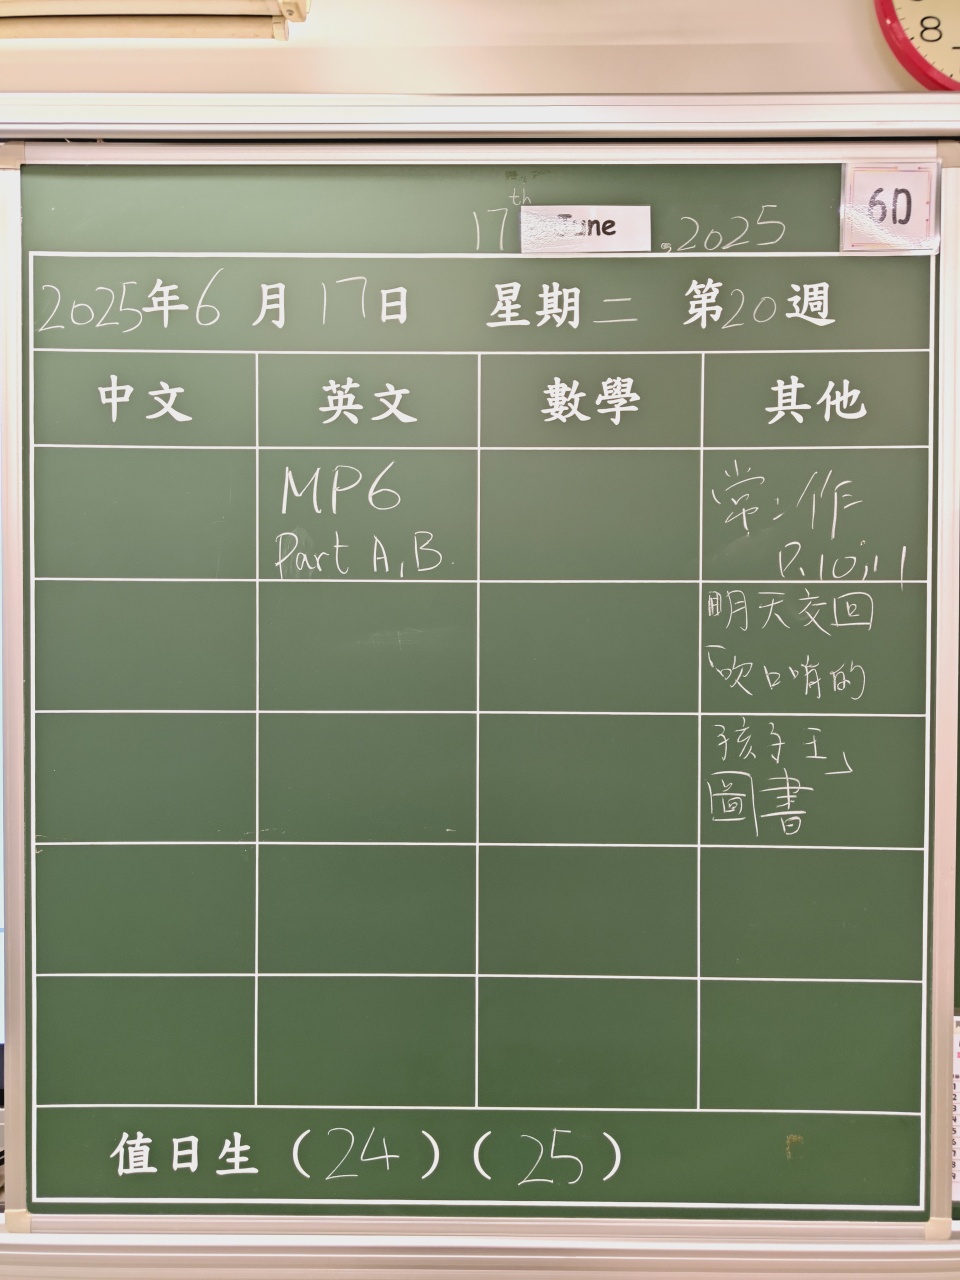 8
17th June, 2025
6D
2025年6月17日 星期二 第20週
中文 英文 數學 其他
MP6
Part A, B.
常:作
P.10,11
明天交回
「吹口哨的
孩子王」
圖書
值日生 (24) (25)